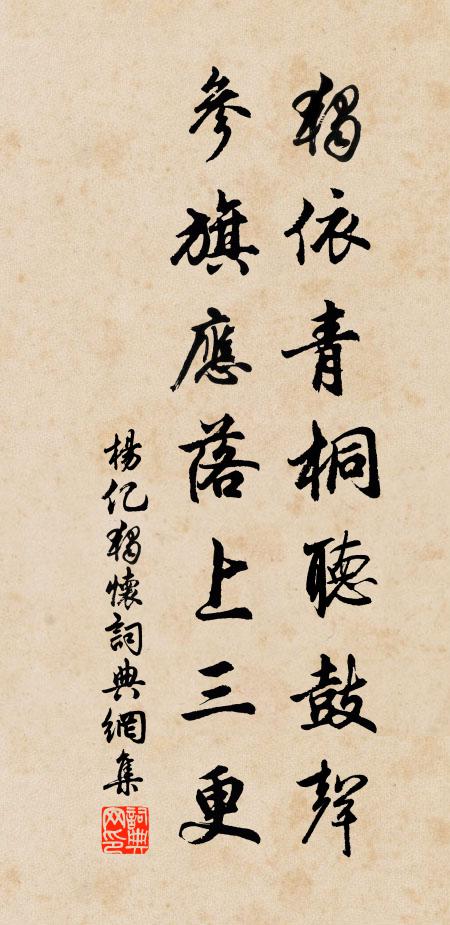 獨依青桐聽鼓聲
參旗應落上三更
楊億獨懷詞典網集
詞典
网印